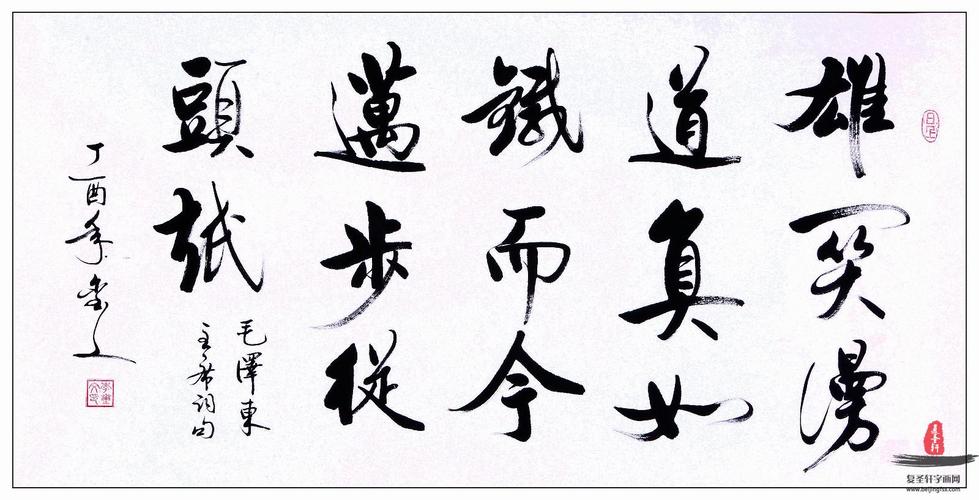 雄関漫
道真如
鐵而今
邁步從
頭越
毛澤東
主席詞句
丁酉年
复圣轩
复圣轩字画网